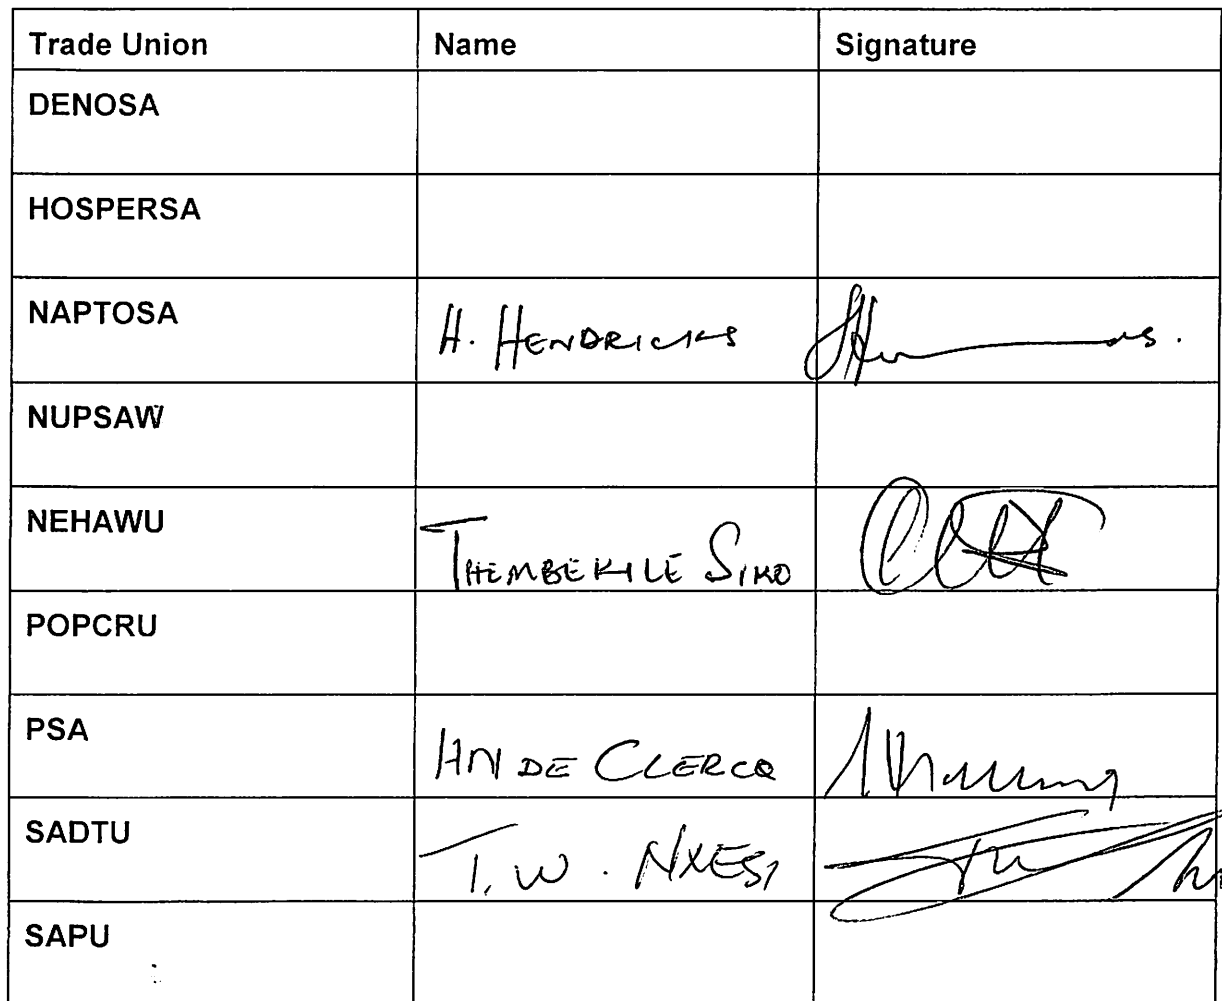 Trade Union Name Signature
DENOSA
HOSPERSA
NAPTOSA H. HENDRICKS
NUPSAW
NEHAWU THEMBEKILE SIKO
POPCRU
PSA HN DE CLERCQ
SADTU T. W. NXESI
SAPU